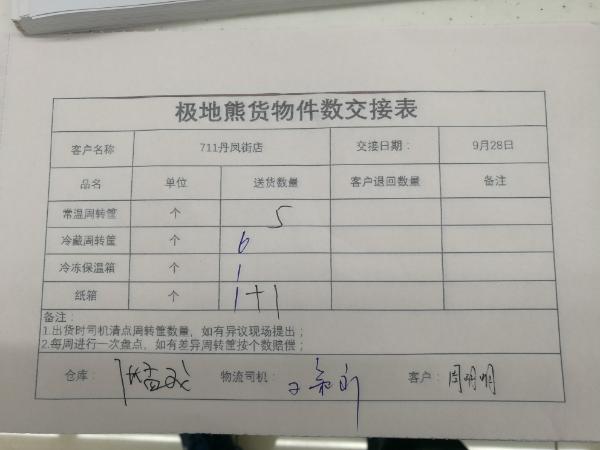 极地熊货物件数交接表
客户名称 711丹凤街店 交接日期： 9月28日
品名 单位 送货数量 客户退回数量 备注
常温周转筐 个 5
冷藏周转筐 个 6
冷冻保温箱 个 1
纸箱 个 1+1
备注：
1.出货时司机清点周转筐数量，如有异议现场提出；
2.每周进行一次盘点，如有差异周转筐按个数赔偿；
仓库： 物流司机： 客户： 周明明